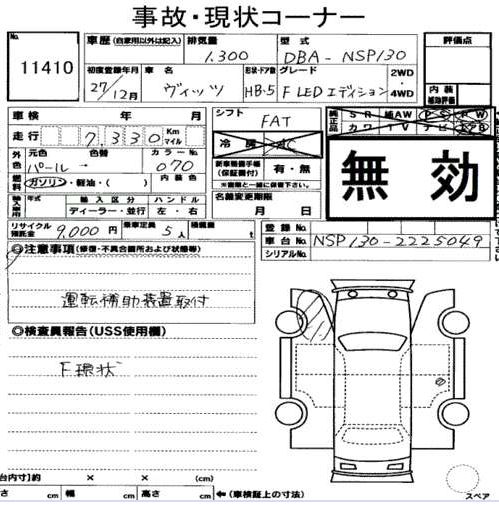 事故・現状コーナー
No. 11410
車歴 (自家用以外は記入)
排気量 1,300
型式 DBA-NSP130
評価点
初度登録年月 27/12月
車名 ヴィッツ
形状・ドア数 HB-5
グレード F LEDエディション
2WD・4WD
内装 補助評価
車検 年 月
シフト FAT
純正品 SR 純AW PS PW
カワ TV ナビ エアB
走行 7,330 Km マイル
冷房 AC
無効
外色 元色 パール 色替 →
カラーNo. 070
新車整備手帳(保証書付) 有・無
※実車と一緒に保管下さい。
燃料 ガソリン・軽油・( )
内装色
名義変更期限 月 日
年式 輸入区分 ハンドル
ディーラー・並行 左・右
リサイクル預託金 9,000円
乗車定員 5人
積載量
登録No.
車台No. NSP130-2225049
シリアルNo.
◎注意事項(修復・不具合箇所および状態等)
運転補助装置取付
◎検査員報告(USS使用欄)
F環状
台内寸)約 × × (cm)
さ (cm) 幅 (cm) 高さ (cm) ←(車検証上の寸法)
スペア